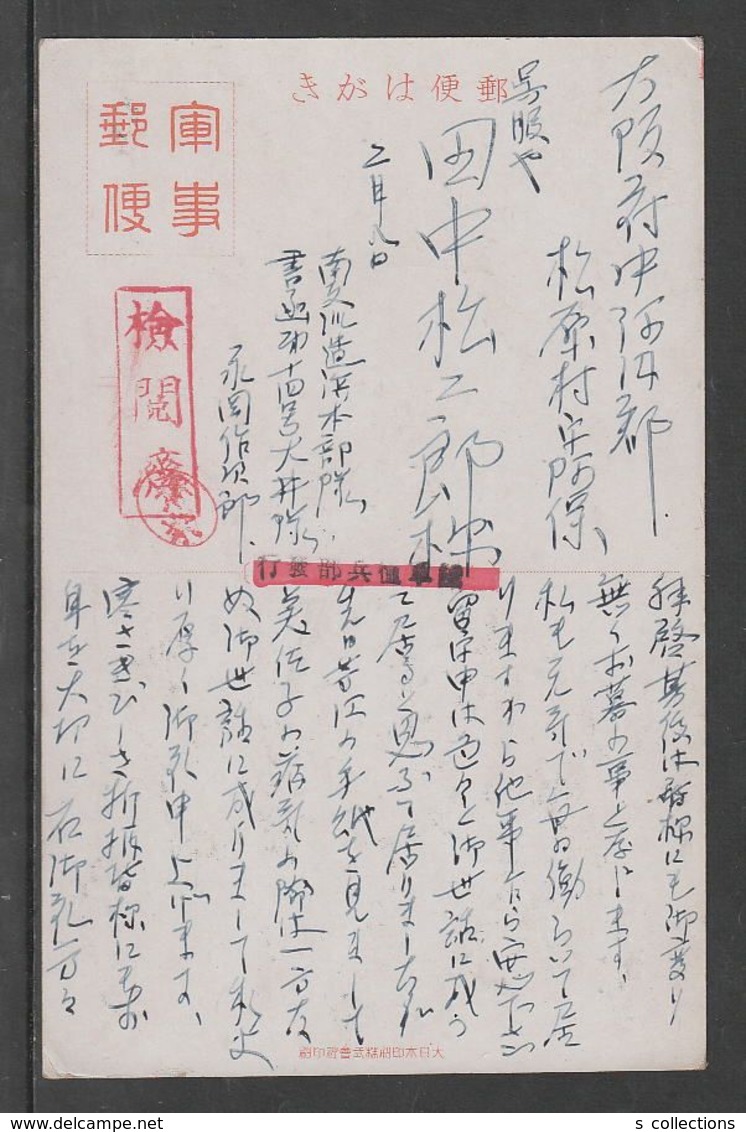 郵便はがき
軍事
郵便
検閲済
大阪府中河内郡
松原村字阿保
呉服や
田中松二郎様
二月九日
南支派遣濱本部隊
書函第十四号大井隊
永岡作次郎
恤兵部發行
拝啓其後は皆様にも御変り
無くお暮の事と存じます、
私も元気で毎日働らいて居
りますから他事乍ら安心下さい
留守中は色々と御世話に成つ
て居ると思ふて居りました
先日芳江の手紙を見まして
美佐子の病気の際は一方な
ぬ御世話に成りまして
り厚く御礼申上げます、
寒さきびしき折柄皆様にもお
身を大切に 右御礼方々
大日本印刷株式會社印刷
s collections